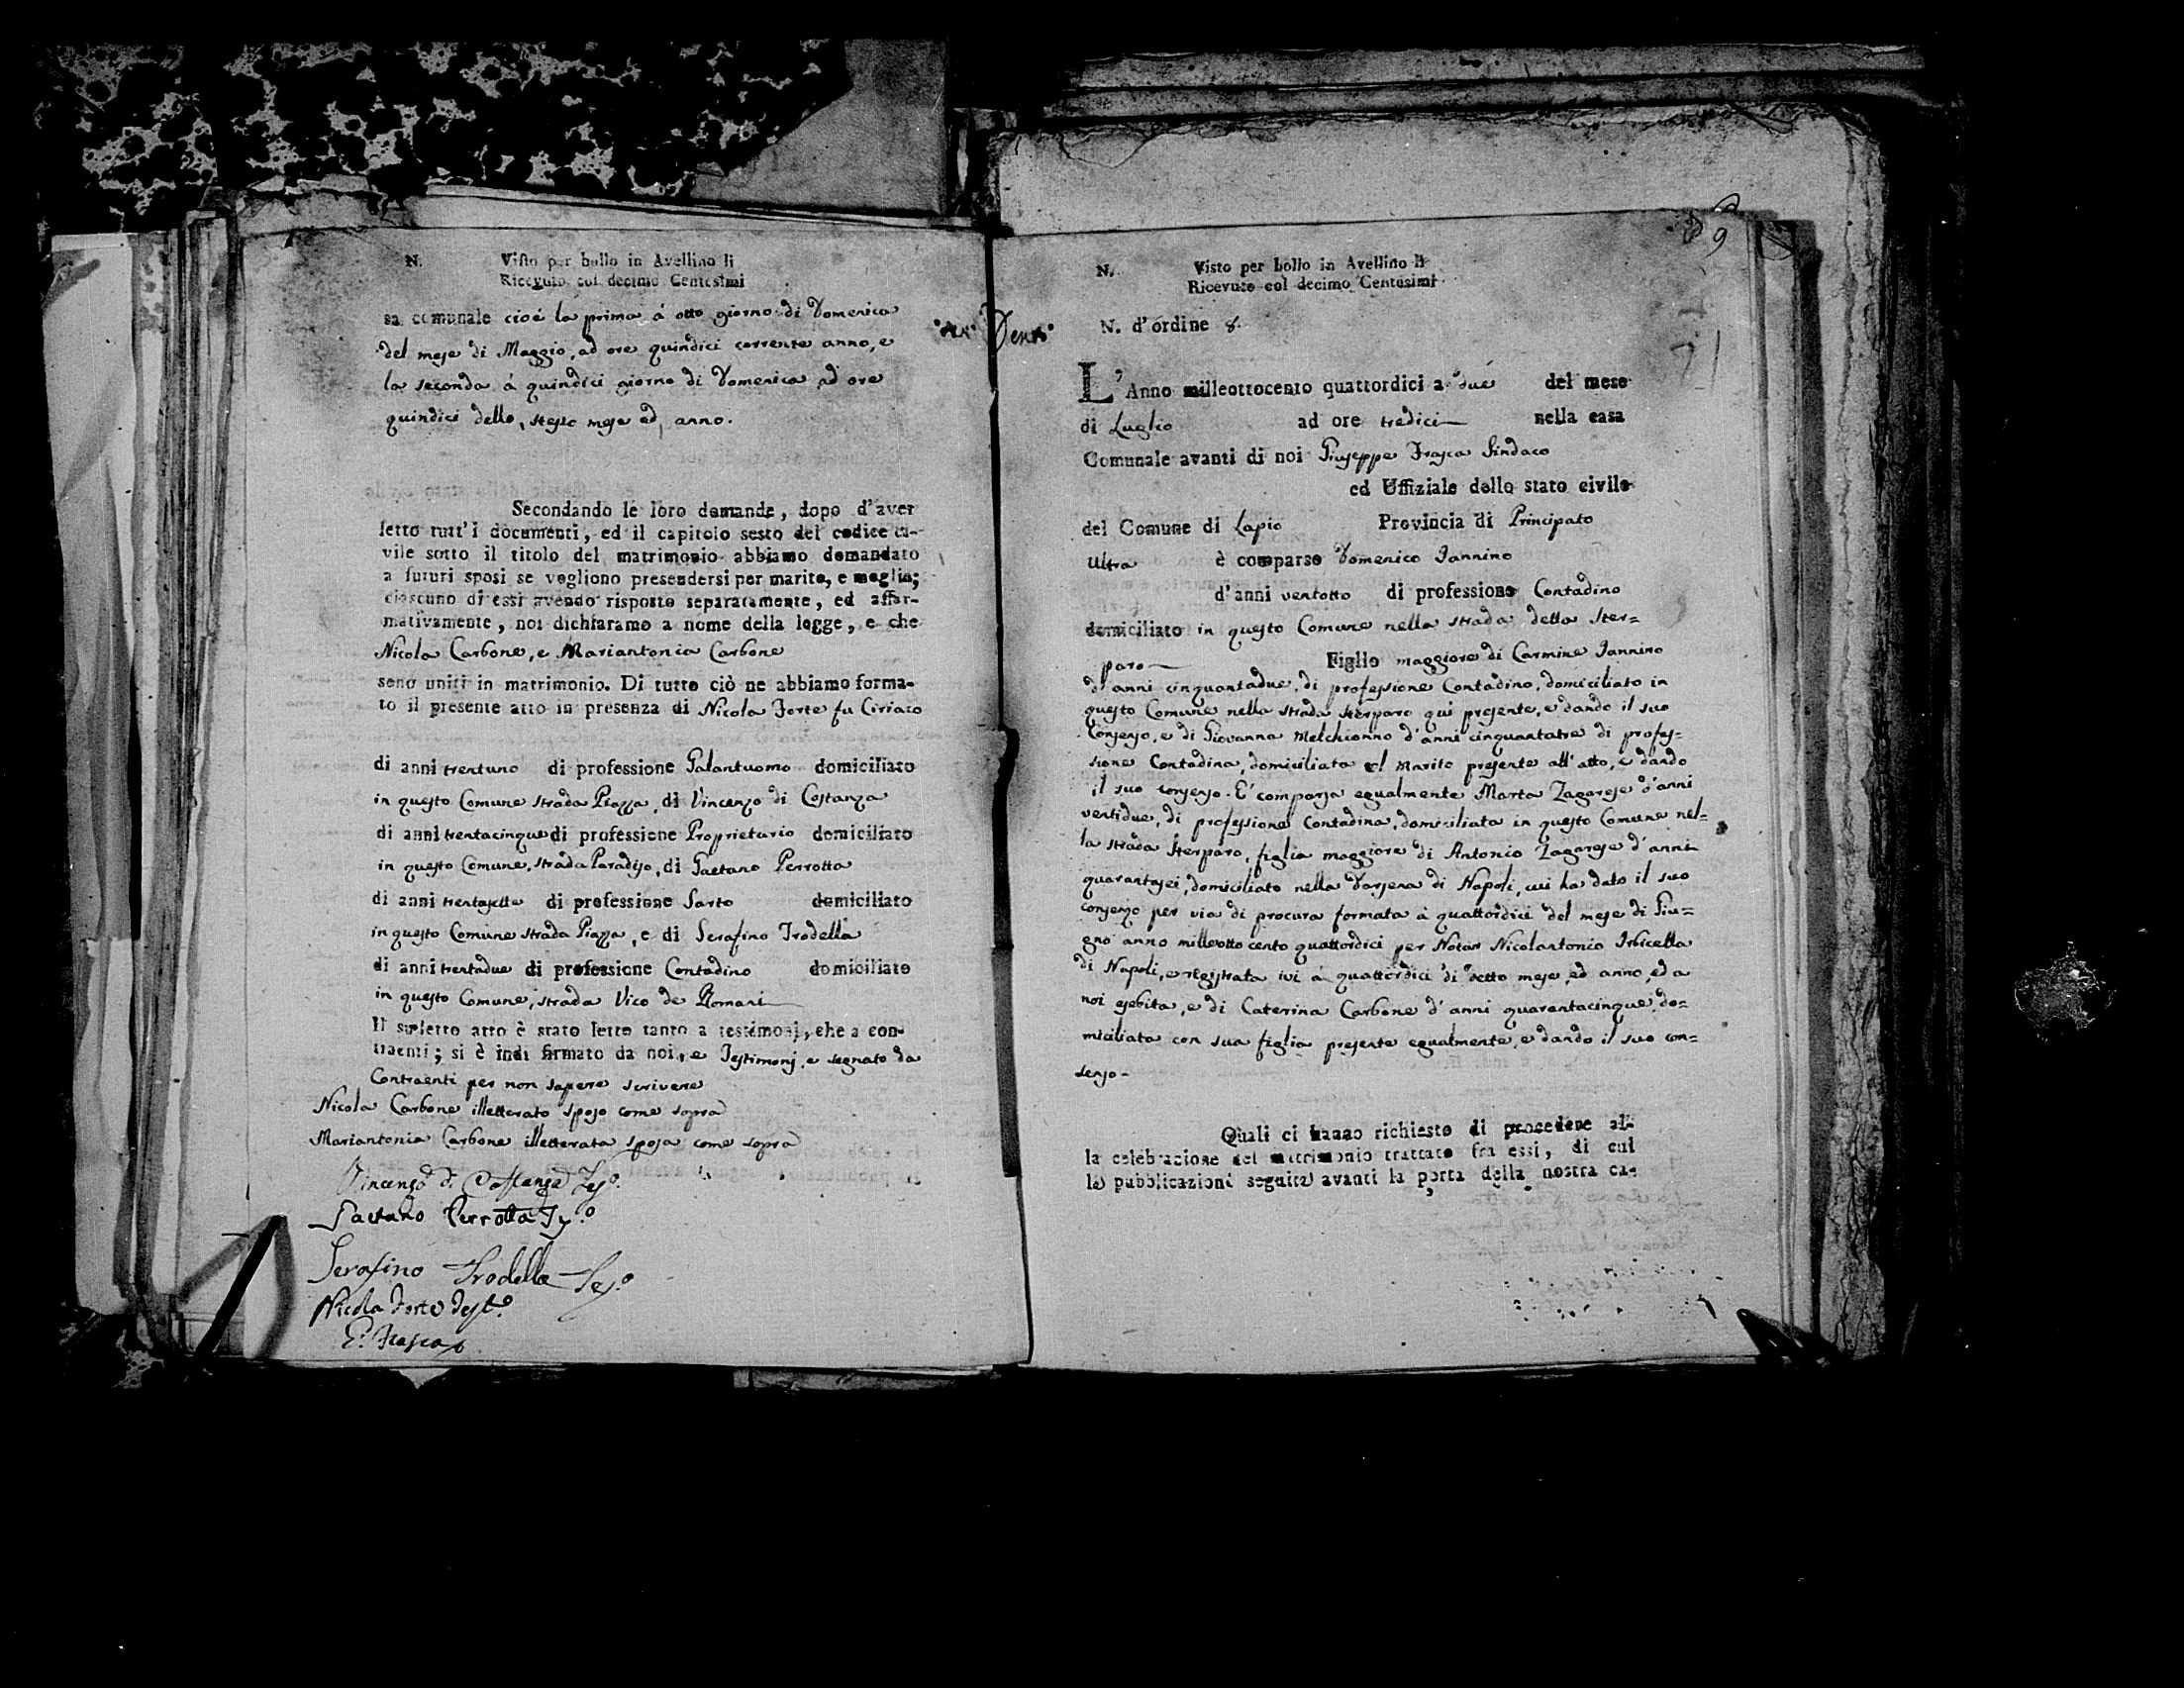 N. Visto per bollo in Avellino li
Ricevuto col decimo Centesimi
sa comunale cioè la prima à otto giorno di Domenica
del mese di Maggio, ad ore quindici corrente anno, e
la seconda à quindici giorno di Domenica ad ore
quindici dello stesso mese ed anno.
Secondando le loro domande, dopo d'aver
letto tutt'i documenti, ed il capitolo sesto del codice ci-
vile sotto il titolo del matrimonio abbiamo domandato
a futuri sposi se vogliono presendersi per marito, e moglie;
ciascuno di essi avendo risposto separatamente, ed affer-
mativamente, noi dichiaramo a nome della legge, e che
Nicola Carbone, e Mariantonia Carbone
sono uniti in matrimonio. Di tutto ciò ne abbiamo forma-
to il presente atto in presenza di Nicola Forte fu Ciriaco
di anni trentuno di professione Galantuomo domiciliato
in questo Comune strada Piazza, di Vincenzo di Costanza
di anni trentacinque di professione Proprietario domiciliato
in questo Comune, strada Paradiso, di Gaetano Perrotta
di anni trentasette di professione Sarto domiciliato
in questo Comune strada Piazza, e di Serafino Trodella
di anni trentadue di professione Contadino domiciliato
in questo Comune, strada Vico de Romani
Il supletto atto è stato letto tanto a testimonj, che a con-
traenti; si è indi firmato da noi, e Testimonj, e segnato da
Contraenti per non sapere scrivere
Nicola Carbone illetterato sposo come sopra
Mariantonia Carbone illetterata sposa come sopra
Vincenzo di Costanza Tes.o
Gaetano Perrotta Tes.o
Serafino Trodella Tes.o
Nicola Forte Test.o
G. Frasca
N. Visto per bollo in Avellino li
Ricevuto col decimo Centesimi
9
N. d'ordine 8.
L'Anno milleottocento quattordici a due del mese
di Luglio ad ore tredici nella casa
Comunale avanti di noi Giuseppe Frasca Sindaco
ed Uffiziale dello stato civile
del Comune di Lapio Provincia di Principato
Ultra è comparso Domenico Jannino
d'anni ventotto di professione Contadino
domiciliato in questo Comune nella strada detta Ster=
paro Figlio maggiore di Carmine Jannino
d'anni cinquantadue, di professione Contadino, domiciliato in
questo Comune nella strada Sterparo qui presente, e dando il suo
Consenso, e di Giovanna Melchionno d'anni cinquantatre di profes=
sione Contadina, domiciliata col Marito presente all'atto, e dando
il suo consenso. E' comparsa egualmente Marta Zagarese d'anni
ventidue, di professione Contadina, domiciliata in questo Comune nel=
la strada Sterparo, figlia maggiore di Antonio Zagarese d'anni
quarantasei, domiciliato nella Darsena di Napoli, cui ha dato il suo
consenso per via di procura formata à quattordici del mese di Giu=
gno anno milleotto cento quattordici per Notar Nicolantonio
di Napoli, e registrata ivi à quattordici di detto mese, ed anno, ed a
noi esebita, e di Caterina Carbone d'anni quarantacinque, do=
miciliata con sua figlia presente egualmente, e dando il suo con=
senso-
Quali ci hanno richiesto di procedere al-
la celebrazione del matrimonio trattato fra essi, di cui
le pubblicazioni seguite avanti la porta della nostra ca-